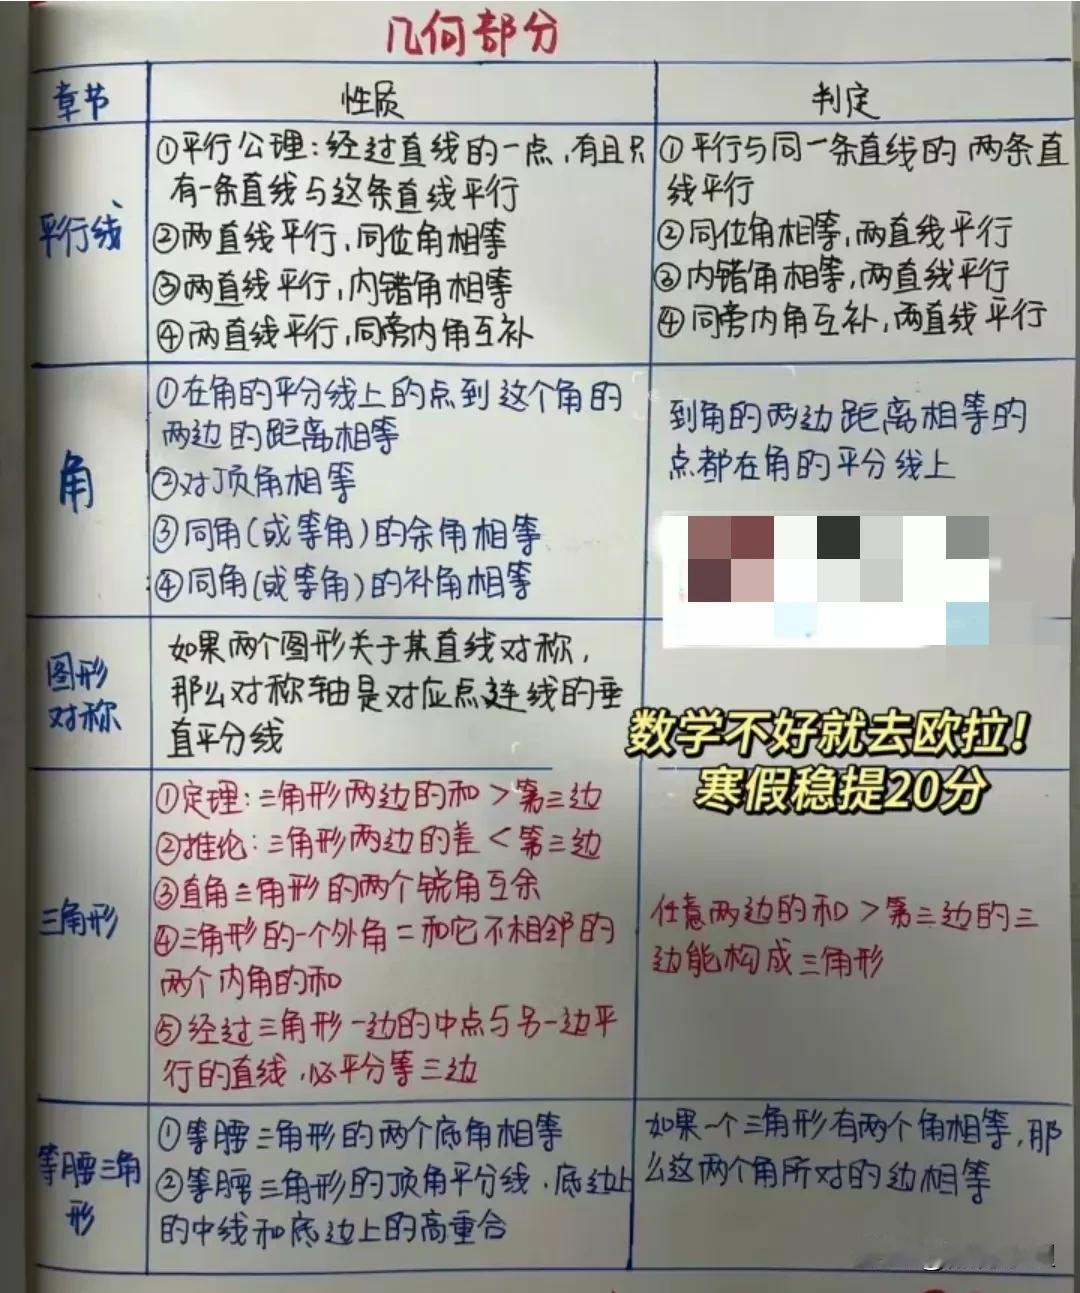 几何部分
章节
性质
判定
平行线
①平行公理:经过直线的一点,有且只
有一条直线与这条直线平行
②两直线平行,同位角相等
③两直线平行,内错角相等
④两直线平行,同旁内角互补
①平行与同一条直线的两条直
线平行
②同位角相等,两直线平行
③内错角相等,两直线平行
④同旁内角互补,两直线平行
角
①在角的平分线上的点到这个角的
两边的距离相等
②对顶角相等
③同角(或等角)的余角相等
④同角(或等角)的补角相等
到角的两边距离相等的
点都在角的平分线上
图形
对称
如果两个图形关于某直线对称,
那么对称轴是对应点连线的垂
直平分线
数学不好就去欧拉!
寒假稳提20分
三角形
①定理:三角形两边的和>第三边
②推论:三角形两边的差<第三边
③直角三角形的两个锐角互余
④三角形的一个外角=和它不相邻的
两个内角的和
⑤经过三角形一边的中点与另一边平
行的直线,必平分第三边
任意两边的和>第三边的三
边能构成三角形
等腰三角
形
①等腰三角形的两个底角相等
②等腰三角形的顶角平分线.底边上
的中线和底边上的高重合
如果一个三角形有两个角相等,那
么这两个角所对的边相等